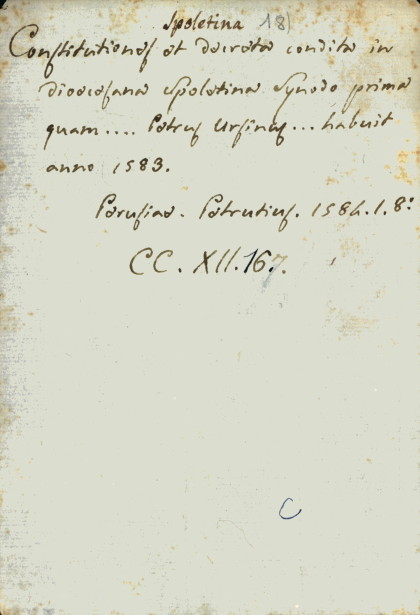 Spoletina 18)
Constitutiones et decreta condita in
dioecesana Spoletina Synodo prima
quam.... Petrus Ursinus... habuit
anno 1583.
Perusiae. Petrutius. 1584. 1. 8:
CC. XII. 167.
C